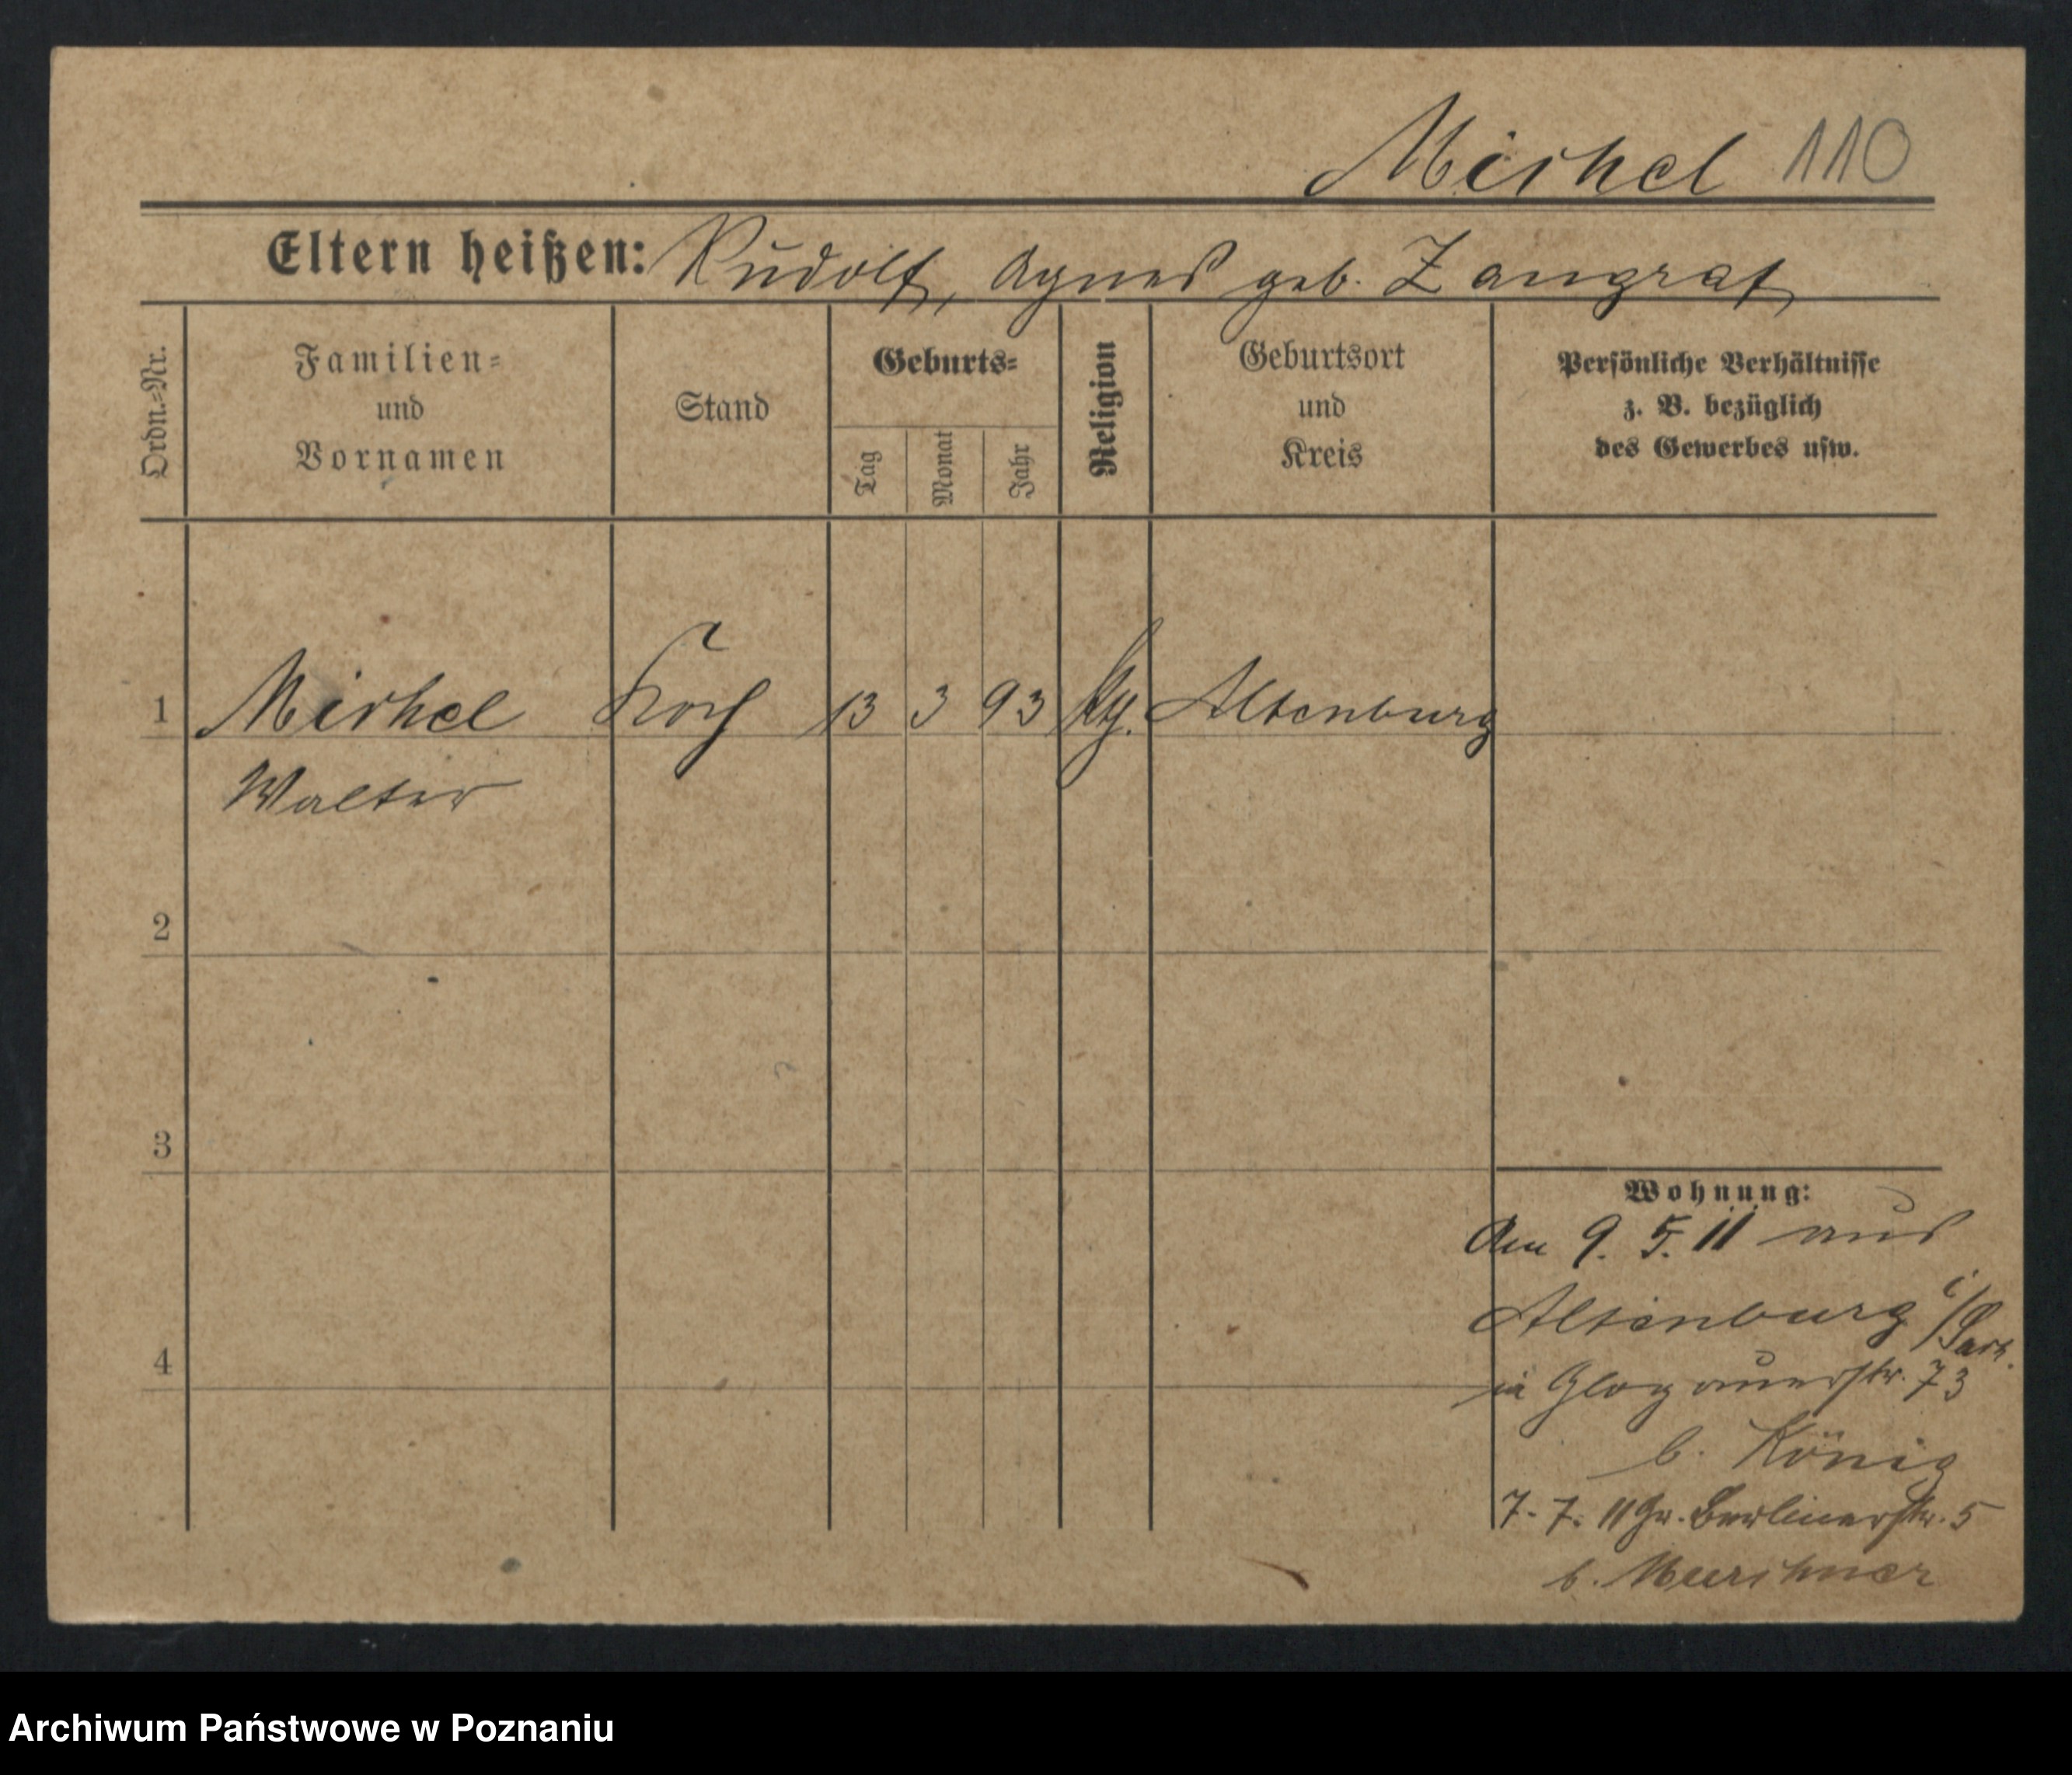 Mischel 110
Eltern heißen: Rudolf, Agnes geb. Zangraf
Ordn.-Nr.
Familien-
und
Vornamen
Stand
Geburts-
Tag
Monat
Jahr
Religion
Geburtsort
und
Kreis
Persönliche Verhältnisse
z. B. bezüglich
des Gewerbes usw.
1 Mischel Koch 13 3 93 Altenburg
Walter
2
3
4
Wohnung:
Am 9. 5. 11 aus
Altenburg i/Sach.
in Glogauerstr. 73
b. König
7. 7. 11 Gr. Berlinerstr. 5
b.
Archiwum Państwowe w Poznaniu